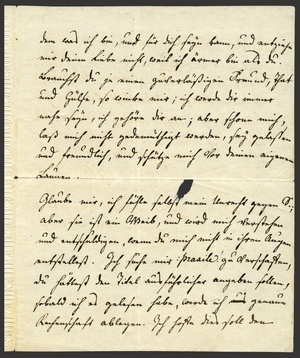 den was ich bin, und für dich seyn kann, und entziehe
mir deine Liebe nicht, weil ich ärmer bin als du.
Brauchst du je einen zuverlässigen Freund, That
und Hülfe, so winke mir; ich werde dir immer
nahe seyn, ich gehöre dir an; aber schone mich,
laß mich nicht gedemüthigt werden, sey gelassen
und freundlich, und schütze mich vor deinen eigenen
Launen.
Glaube mir, ich fühle selbst mein Unrecht gegen
aber sie ist ein Weib, und wird mich verstehen
und entschuldigen, wenn du mich nicht in ihren Augen
entstellest. Ich suche mir zu verschaffen,
du hättest den Titel ausführlicher angeben sollen,
sobald ich es gelesen habe, werde ich genaue
Rechenschaft ablegen. Ich hoffe dies soll den